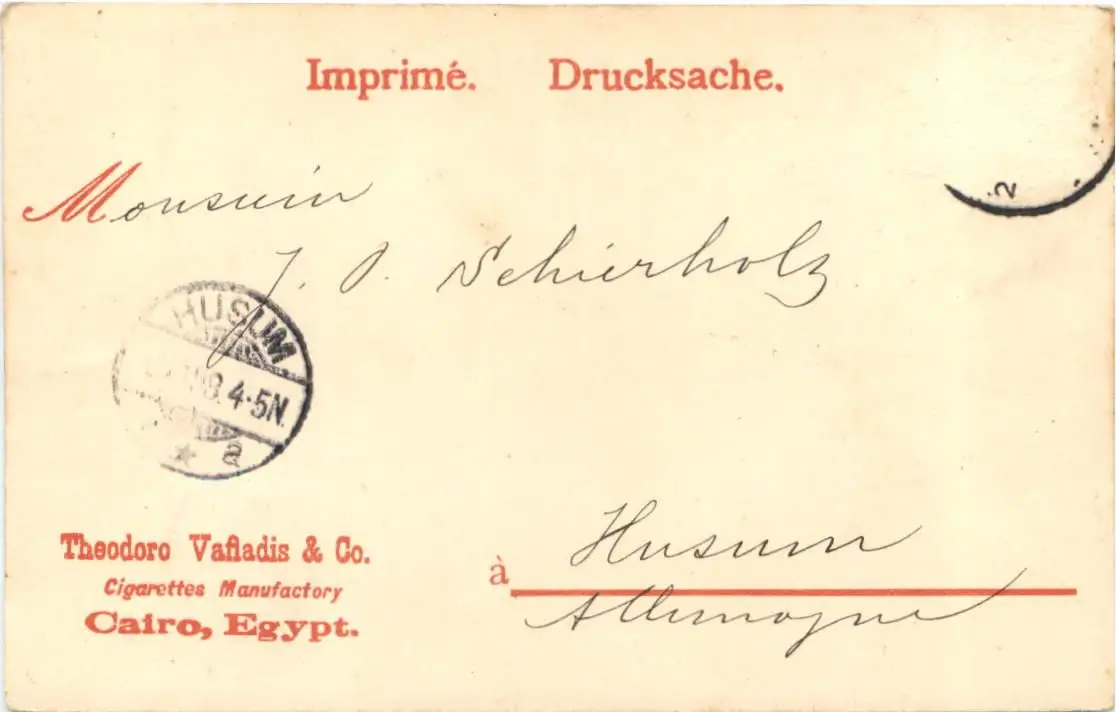 Imprimé. Drucksache.
Monsieur
J. P. Schierholz
HUSUM
8. 4-5N.
* a
2
Theodoro Vafiadis & Co.
Cigarettes Manufactory
Cairo, Egypt.
à Husum
Allemagne